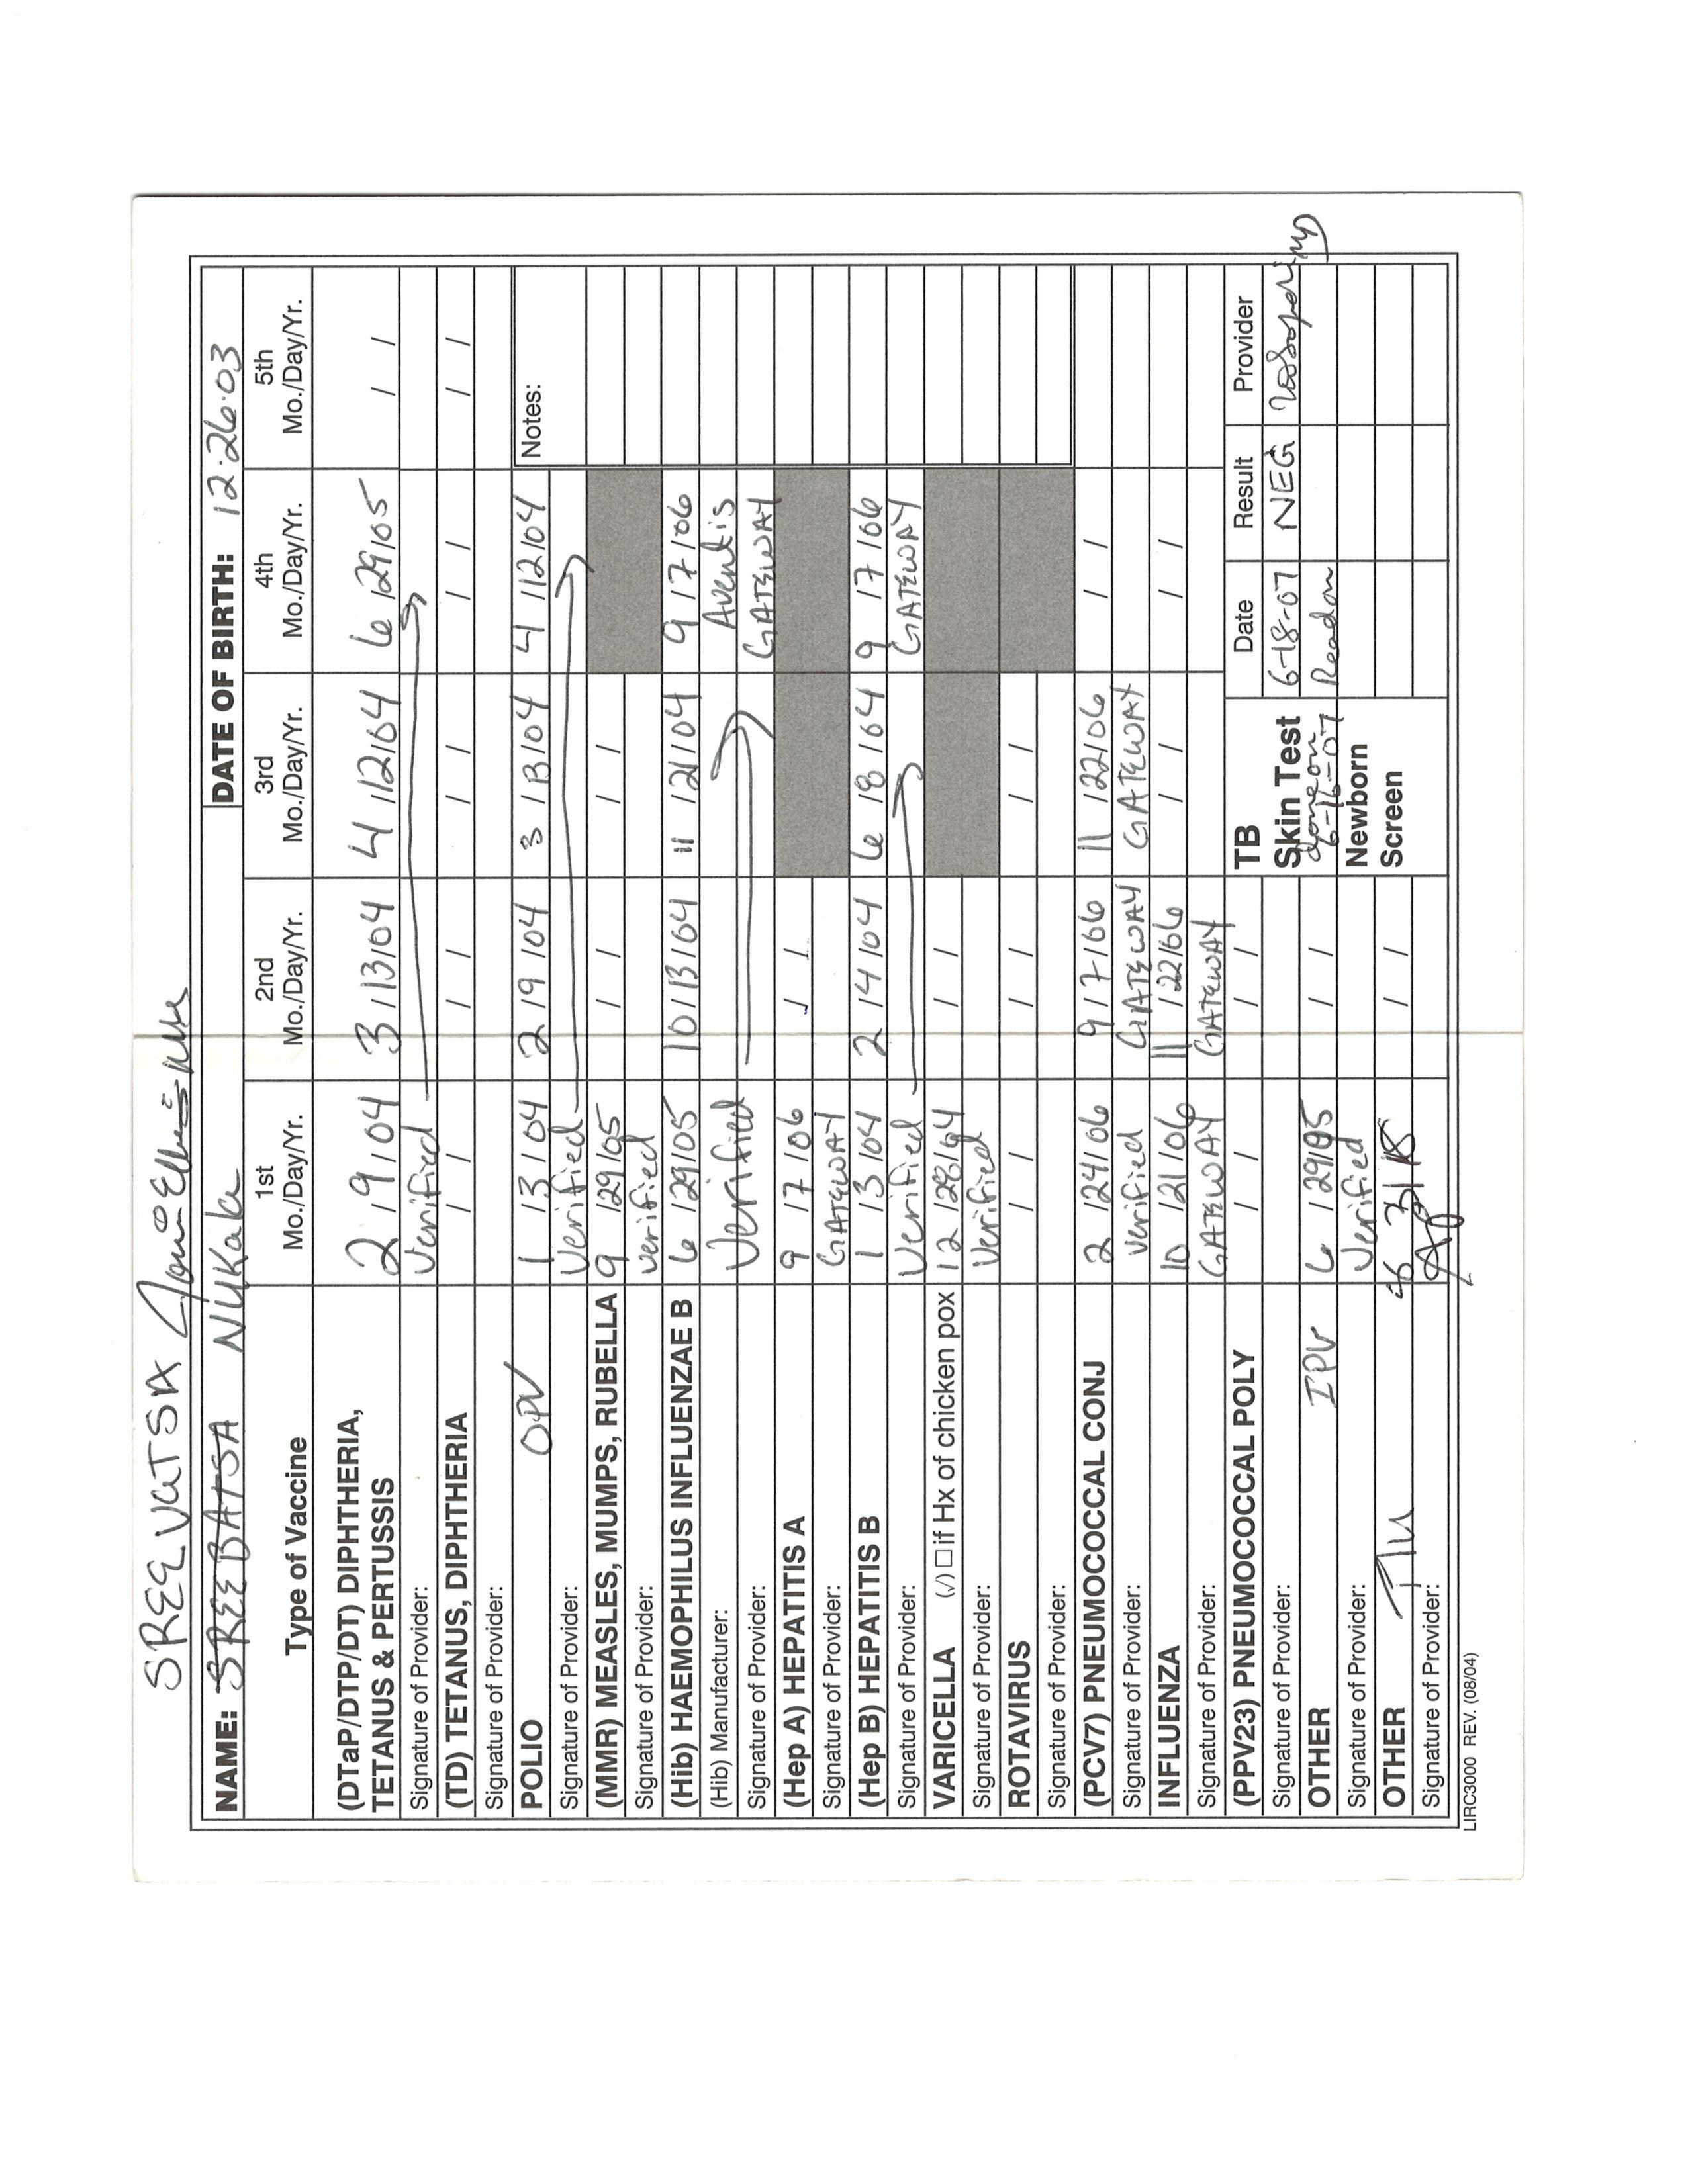 SREEVATSA
NAME: SREEBATSA NUKala DATE OF BIRTH: 12·26·03
Type of Vaccine 1st Mo./Day/Yr. 2nd Mo./Day/Yr. 3rd Mo./Day/Yr. 4th Mo./Day/Yr. 5th Mo./Day/Yr.
(DTaP/DTP/DT) DIPHTHERIA,
TETANUS & PERTUSSIS 2/9/04 3/13/04 4/12/04 6/29/05 / /
Signature of Provider: Verified
(TD) TETANUS, DIPHTHERIA / / / / / / / / / /
Signature of Provider:
POLIO OPV 1/3/04 2/9/04 3/13/04 4/12/04 Notes:
Signature of Provider: Verified
(MMR) MEASLES, MUMPS, RUBELLA 9/29/05 / / / /
Signature of Provider: verified
(Hib) HAEMOPHILUS INFLUENZAE B 6/29/05 10/13/04 11/21/04 9/7/06
(Hib) Manufacturer: Aventis
Signature of Provider: Verified GATEWAY
(Hep A) HEPATITIS A 9/7/06 / /
Signature of Provider: GATEWAY
(Hep B) HEPATITIS B 1/3/04 2/4/04 6/8/04 9/7/06
Signature of Provider: Verified GATEWAY
VARICELLA (√) □ if Hx of chicken pox 12/28/04 / /
Signature of Provider: Verified
ROTAVIRUS / / / / / /
Signature of Provider:
(PCV7) PNEUMOCOCCAL CONJ 2/24/06 9/7/06 11/22/06 / /
Signature of Provider: verified GATEWAY GATEWAY
INFLUENZA 10/21/06 11/22/06 / / / /
Signature of Provider: GATEWAY GATEWAY
(PPV23) PNEUMOCOCCAL POLY / / / / TB Date Result Provider
Signature of Provider: Skin Test 6-18-07 NEG
OTHER IPV 6/29/05 / / done on 6-16-07 Read on
Signature of Provider: Verified Newborn
OTHER / / Screen
Signature of Provider:
LIRC3000 REV. (08/04)